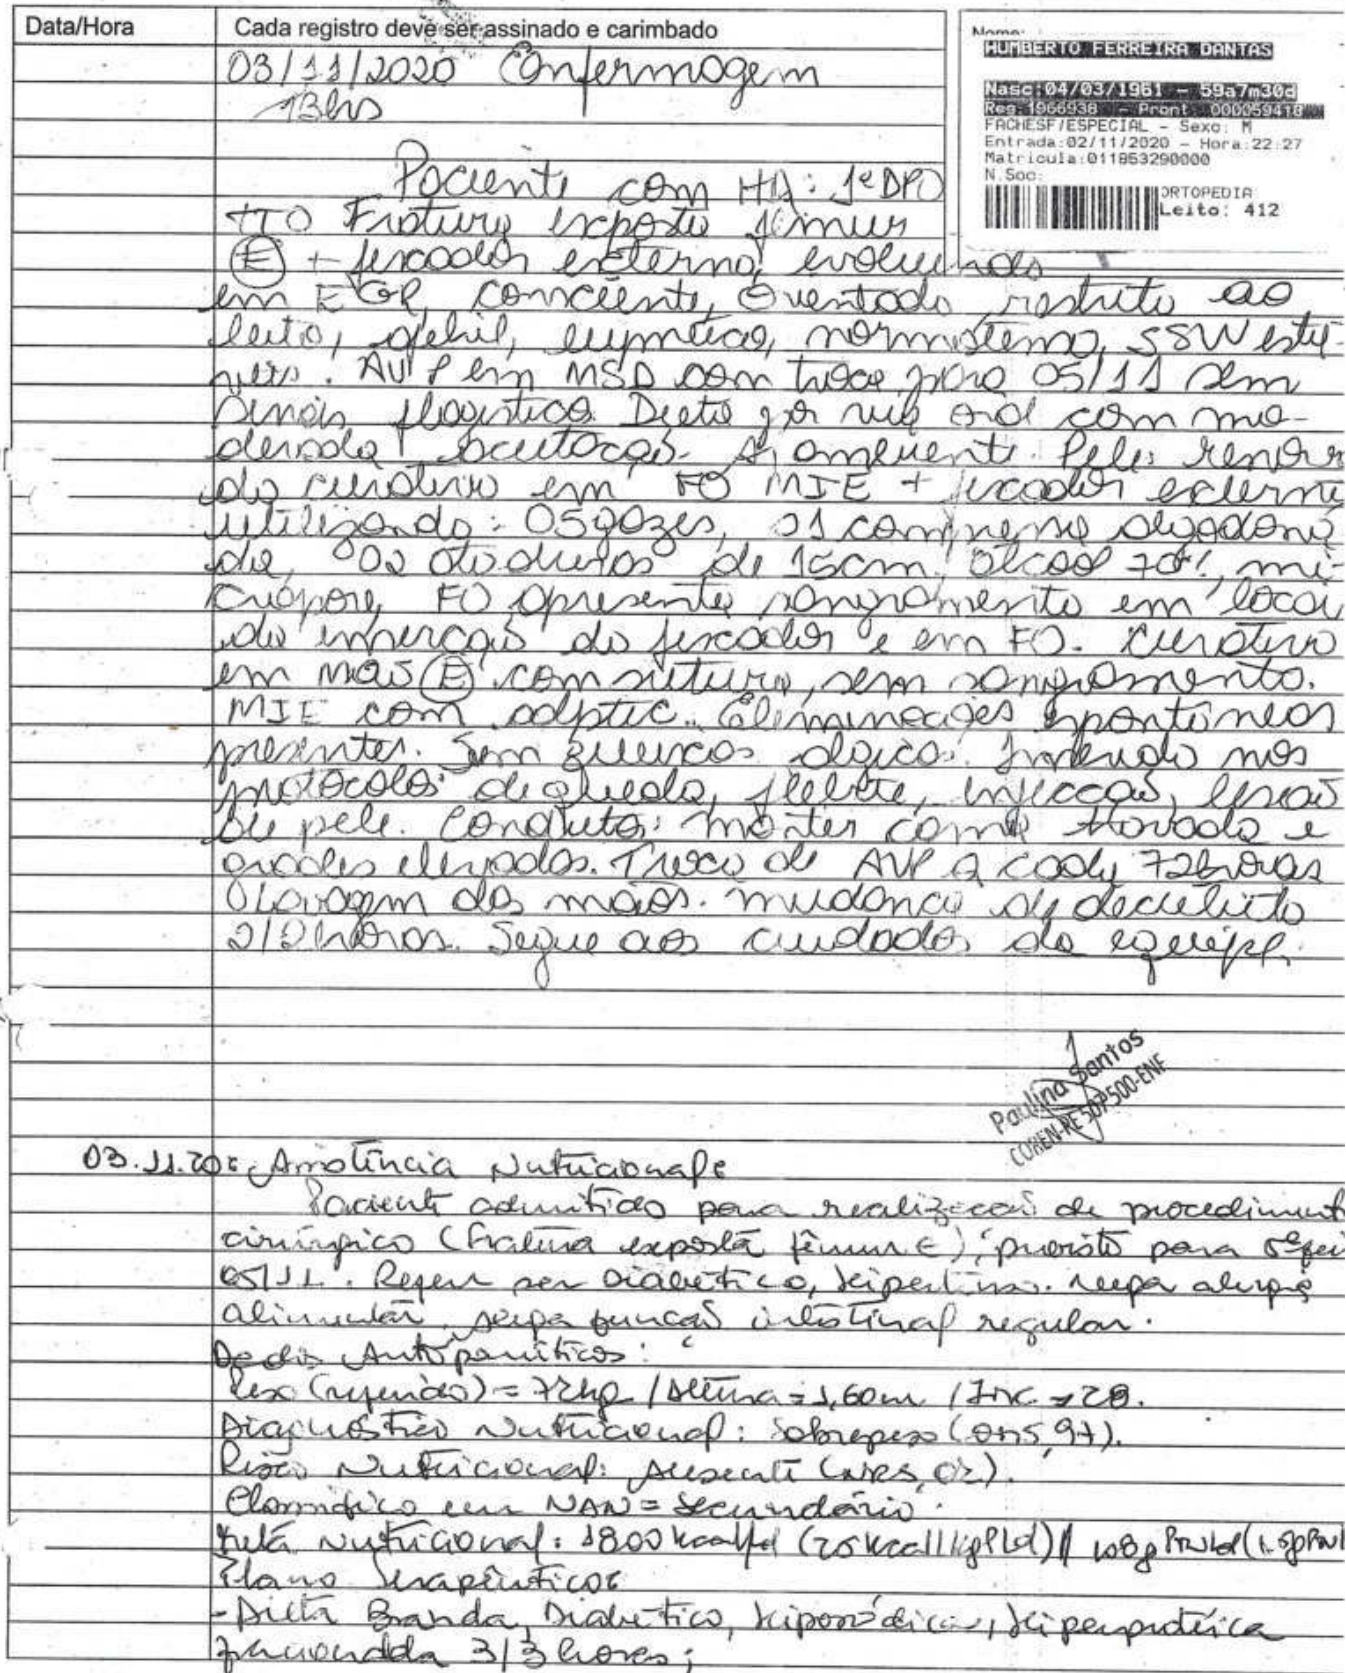 Data/Hora
Cada registro deve ser assinado e carimbado
Nome:
HUMBERTO FERREIRA DANTAS
Nasc:04/03/1961 - 59a7m30d
Reg:1966938 - Pront: 000059418
FACHESF/ESPECIAL - Sexo: M
Entrada:02/11/2020 - Hora:22:27
Matricula:011853290000
N.Soc:
ORTOPEDIA
Leito: 412
03/11/2020 Enfermagem
13hs
Paciente com HD: 1º DPO
TTO Fratura exposta fêmur
(E) + fixador externo, evoluindo
em EGR, consciente, orientado, restrito ao
leito, afebril, eupneico, normotenso, SSVV está-
veis. AVP em MSD com troca para 05/11 sem
sinais flogístico. Dieta por via oral com mo-
derada aceitação. Ar ambiente. Pele:
do curativo em FO MIE + fixador externo
utilizando: 05 gazes, 01 compressa algodona
da, 02 ataduras de 15cm, álcool 70%, mi-
cropore, FO apresenta sangramento em local
de inserção do fixador e em FO. Curativo
em mão (E) com sutura, sem sangramento.
MIE com adaptic. Eliminações espontâneas
presentes. Sem queixas álgicas. Inserido nos
protocolos de queda, flebite, infecção, lesão
de pele. Conduta: manter cama travada e
grades elevadas. Troca de AVP a cada 72horas
lavagem das mãos. mudança de decúbito
2/2 horas. Segue aos cuidados da equipe.
Paulina Santos
COREN-PE 507500-ENF
03.11.20: Assistência Nutricional:
Paciente admitido para realização de procediment
cirúrgico (fratura exposta fêmur E), previsto para 5ª fei
05/11. Refere ser diabético, hipertenso. nega alergia
alimentar, função intestinal regular.
Dados Antropométricos:
Peso (referido) = 72kg / Altura = 1,60m / IMC → 28.
Diagnóstico Nutricional: Sobrepeso (OMS, 97).
Risco Nutricional: Ausente (NRS, 02).
Classifico em NAN = Secundário.
Meta Nutricional: 1800 kcal/d (25 kcal/kgP/d) // 108g Ptn/d (1.5gPtn/
Plano Terapêutico:
- Dieta Branda, Diabético, hipossódica, hiperproteica
fracionada 3/3 horas;